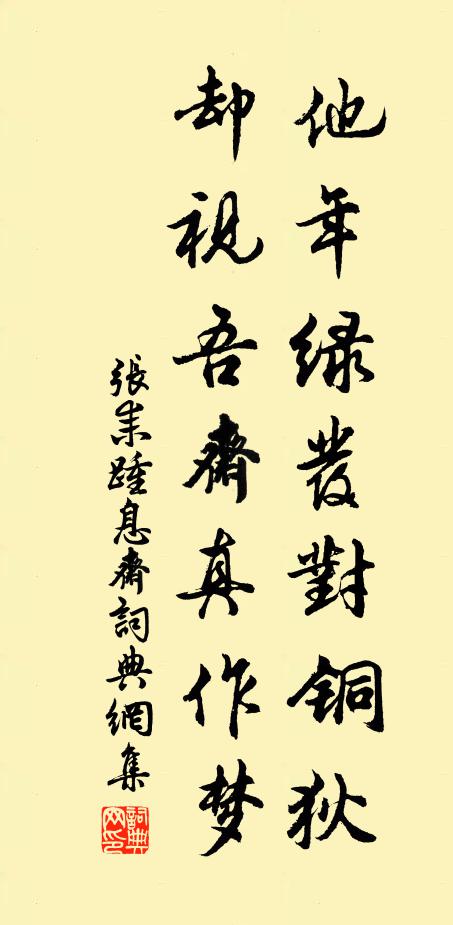 他年绿发對铜狄
却視吾齋真作梦
張耒踵息齋詞典網集
詞典网印